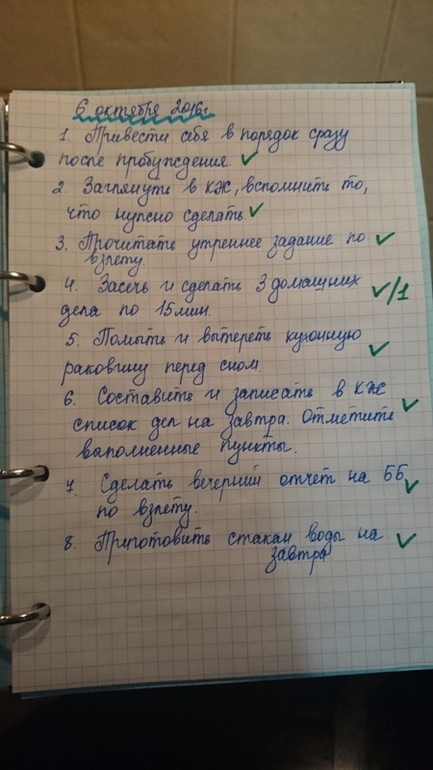 6 октября 2016г.
1. Привести себя в порядок сразу
после пробуждения. ✓
2. Заглянуть в КЖ, вспомнить то,
что нужно сделать. ✓
3. Прочитать утреннее задание по ✓
взлету.
4. Засечь и сделать 3 домашних ✓/1
дела по 15 мин.
5. Помыть и вытереть кухонную
раковину перед сном. ✓
6. Составить и записать в КЖ ✓
список дел на завтра. Отметить
выполненные пункты.
7. Сделать вечерний отчет на ББ ✓
по взлету.
8. Приготовить стакан воды на ✓
завтра